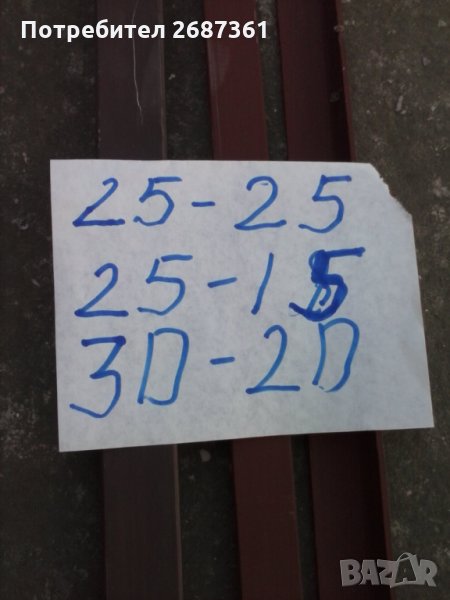 Потребител 2687361
25-25
25-15
30-20
BAZAR